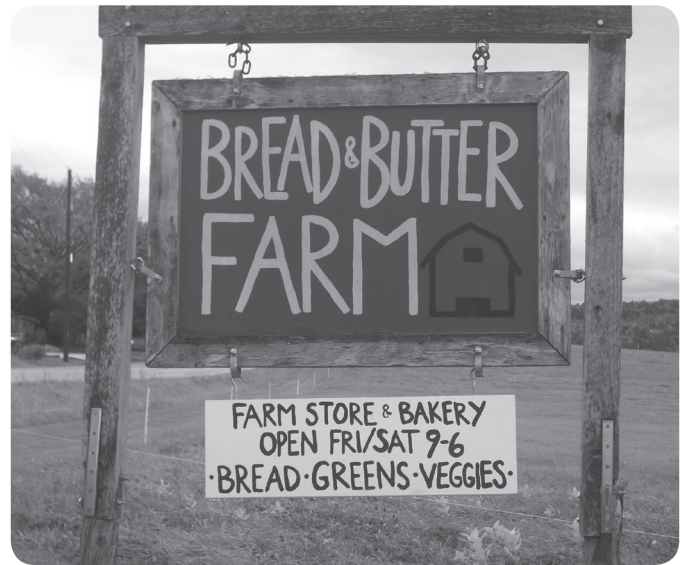 BREAD & BUTTER
FARM
FARM STORE & BAKERY
OPEN FRI/SAT 9-6
·BREAD·GREENS·VEGGIES·